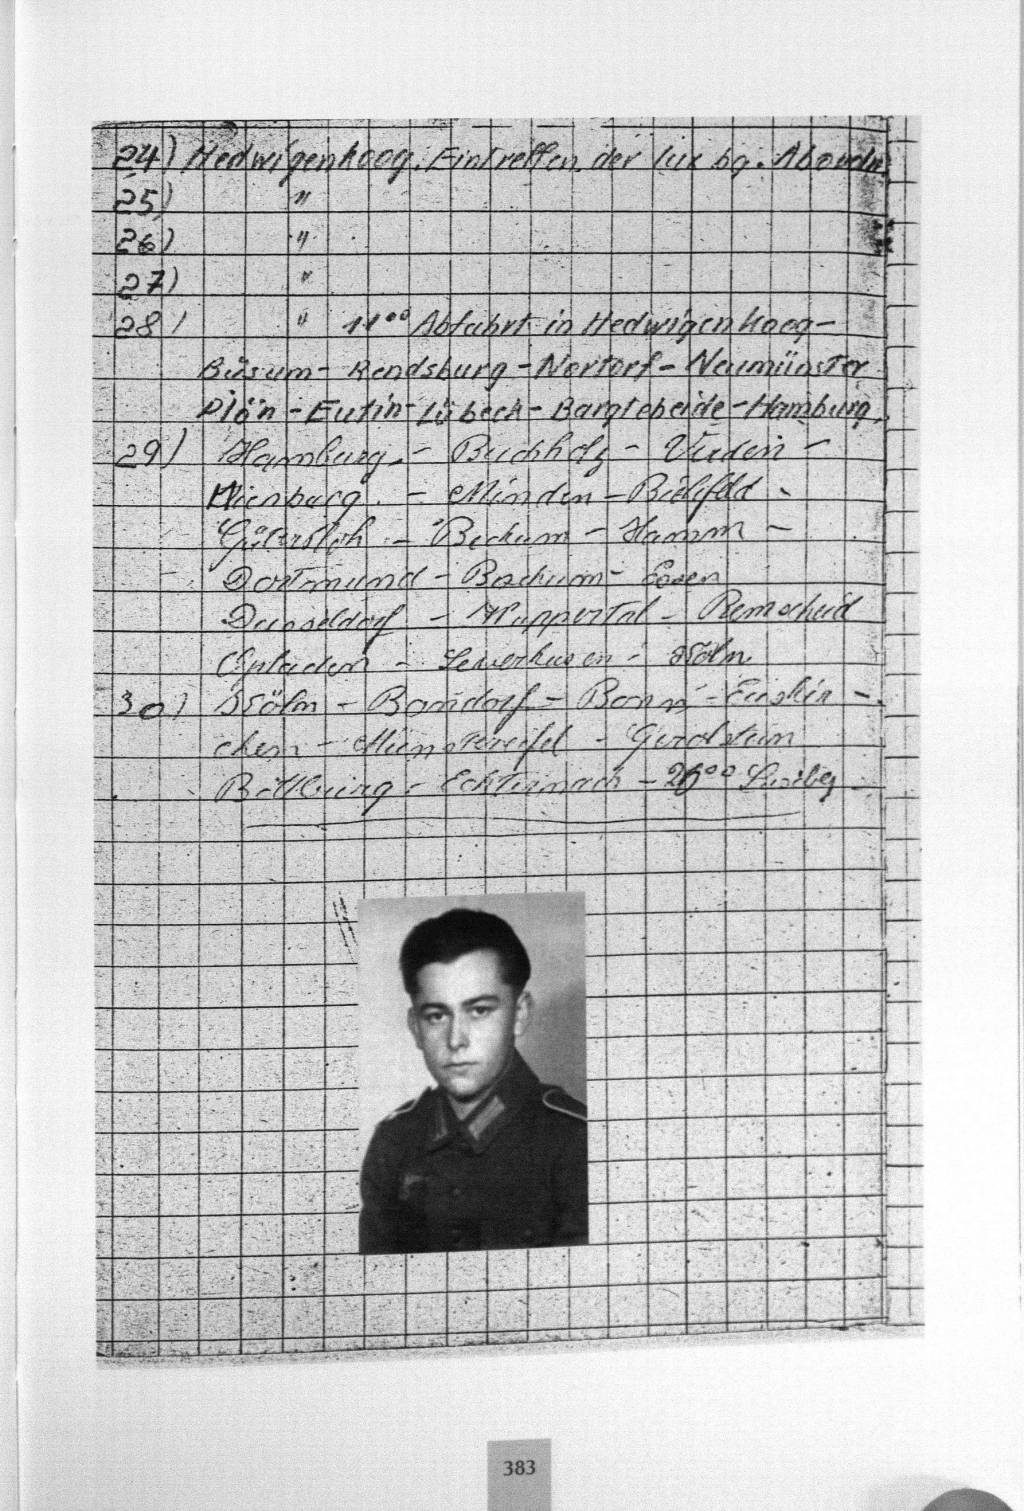 24) Hedwigenkoog. Eintreffen der lux bg. Abordn.
25) "
26) "
27) "
28) " 11⁰⁰ Abfahrt in Hedwigenkoog-
Büsum - Rendsburg - Nortorf - Neumünster
Plön - Eutin - Lübeck - Bargteheide - Hamburg.
29) Hamburg. - Buchholz - Verden -
Nienburg. - Minden - Bielefeld -
Gütersloh - Beckum - Hamm -
Dortmund - Bochum - Essen
Düsseldorf - Wuppertal - Remscheid
Opladen - Leverkusen - Köln
30) Köln - - Bonn - Euskir -
chen - Münstereifel - Gerolstein
Bittburg - Echternach - Luxbg
383